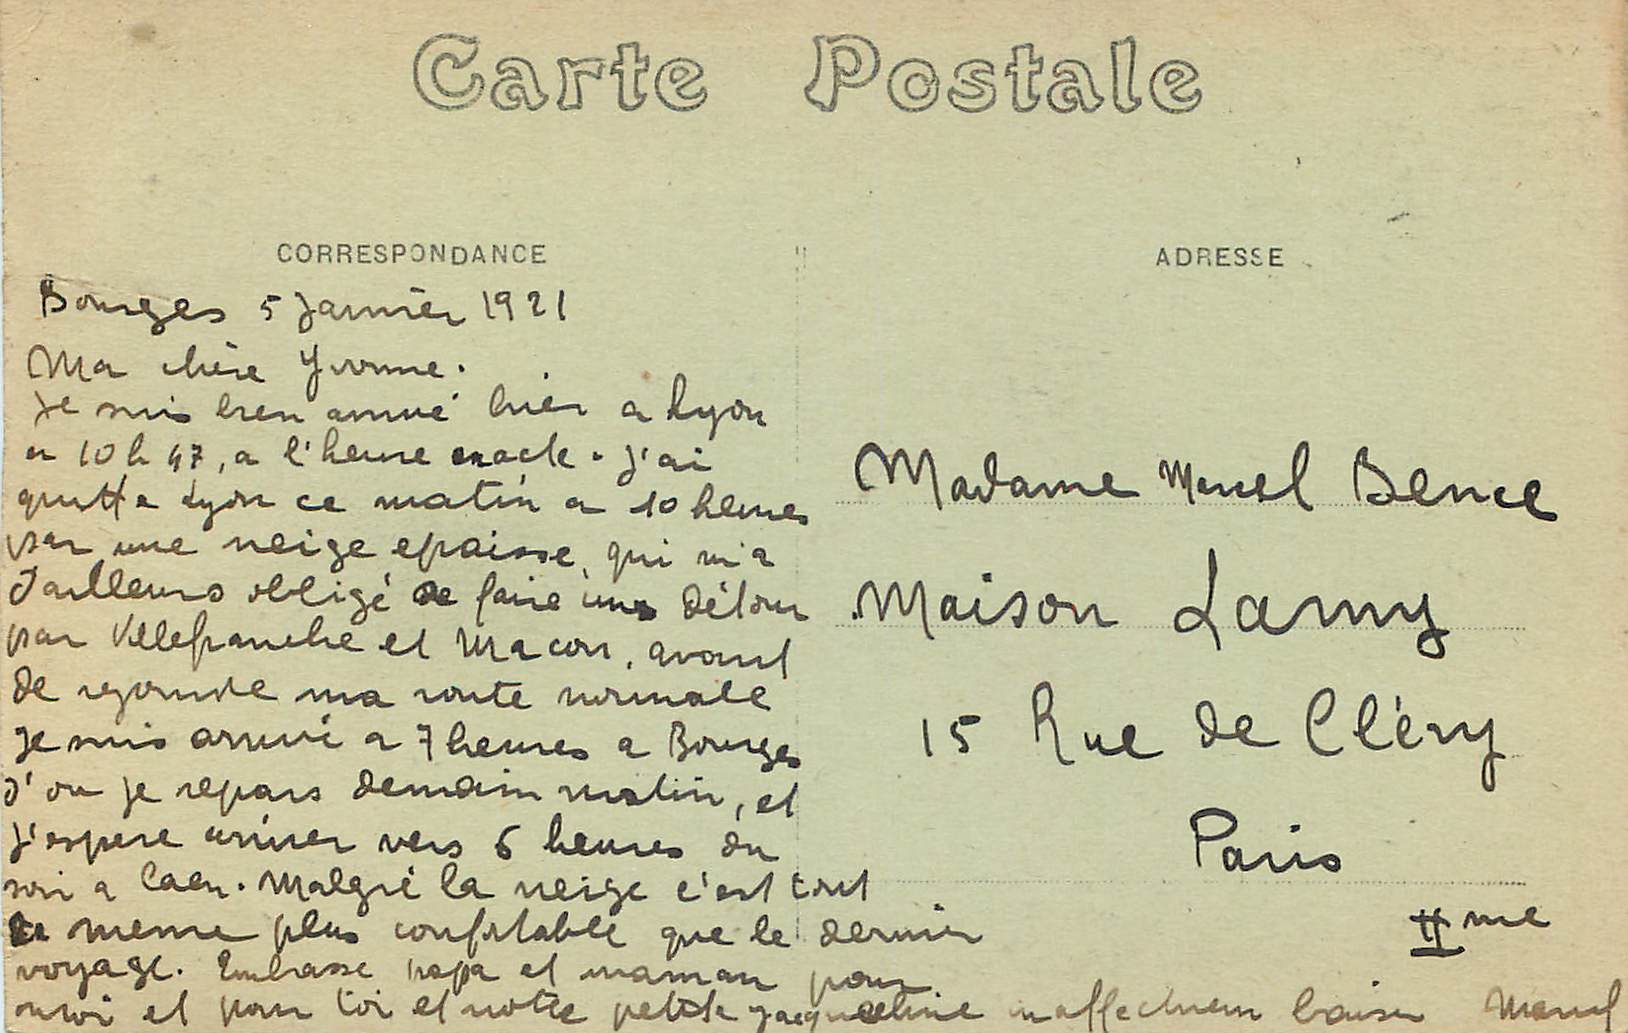 Carte Postale
CORRESPONDANCE
Bourges 5 Janvier 1921
Ma chère Yvonne.
Je suis bien arrivé hier a Lyon
a 10 h 47, a l'heure exacte. J'ai
quitte Lyon ce matin a 10 heures
par une neige epaisse, qui m'a
d'ailleurs obligé de faire un détour
par Villefranche et Macon, avant
de rejoindre ma route normale
Je suis arrivé a 7 heures a Bourges
d'ou je repars demain matin, et
j'espere arriver vers 6 heures du
soir a Caen. Malgré la neige c'est tout
de meme plus confortable que le dernier
voyage. Embrasse papa et maman pour
moi et pour toi et notre petite Jacqueline un affectueux baiser Marcel
ADRESSE
Madame Marcel Bence
Maison Lamy
15 Rue de Cléry
Paris
II me